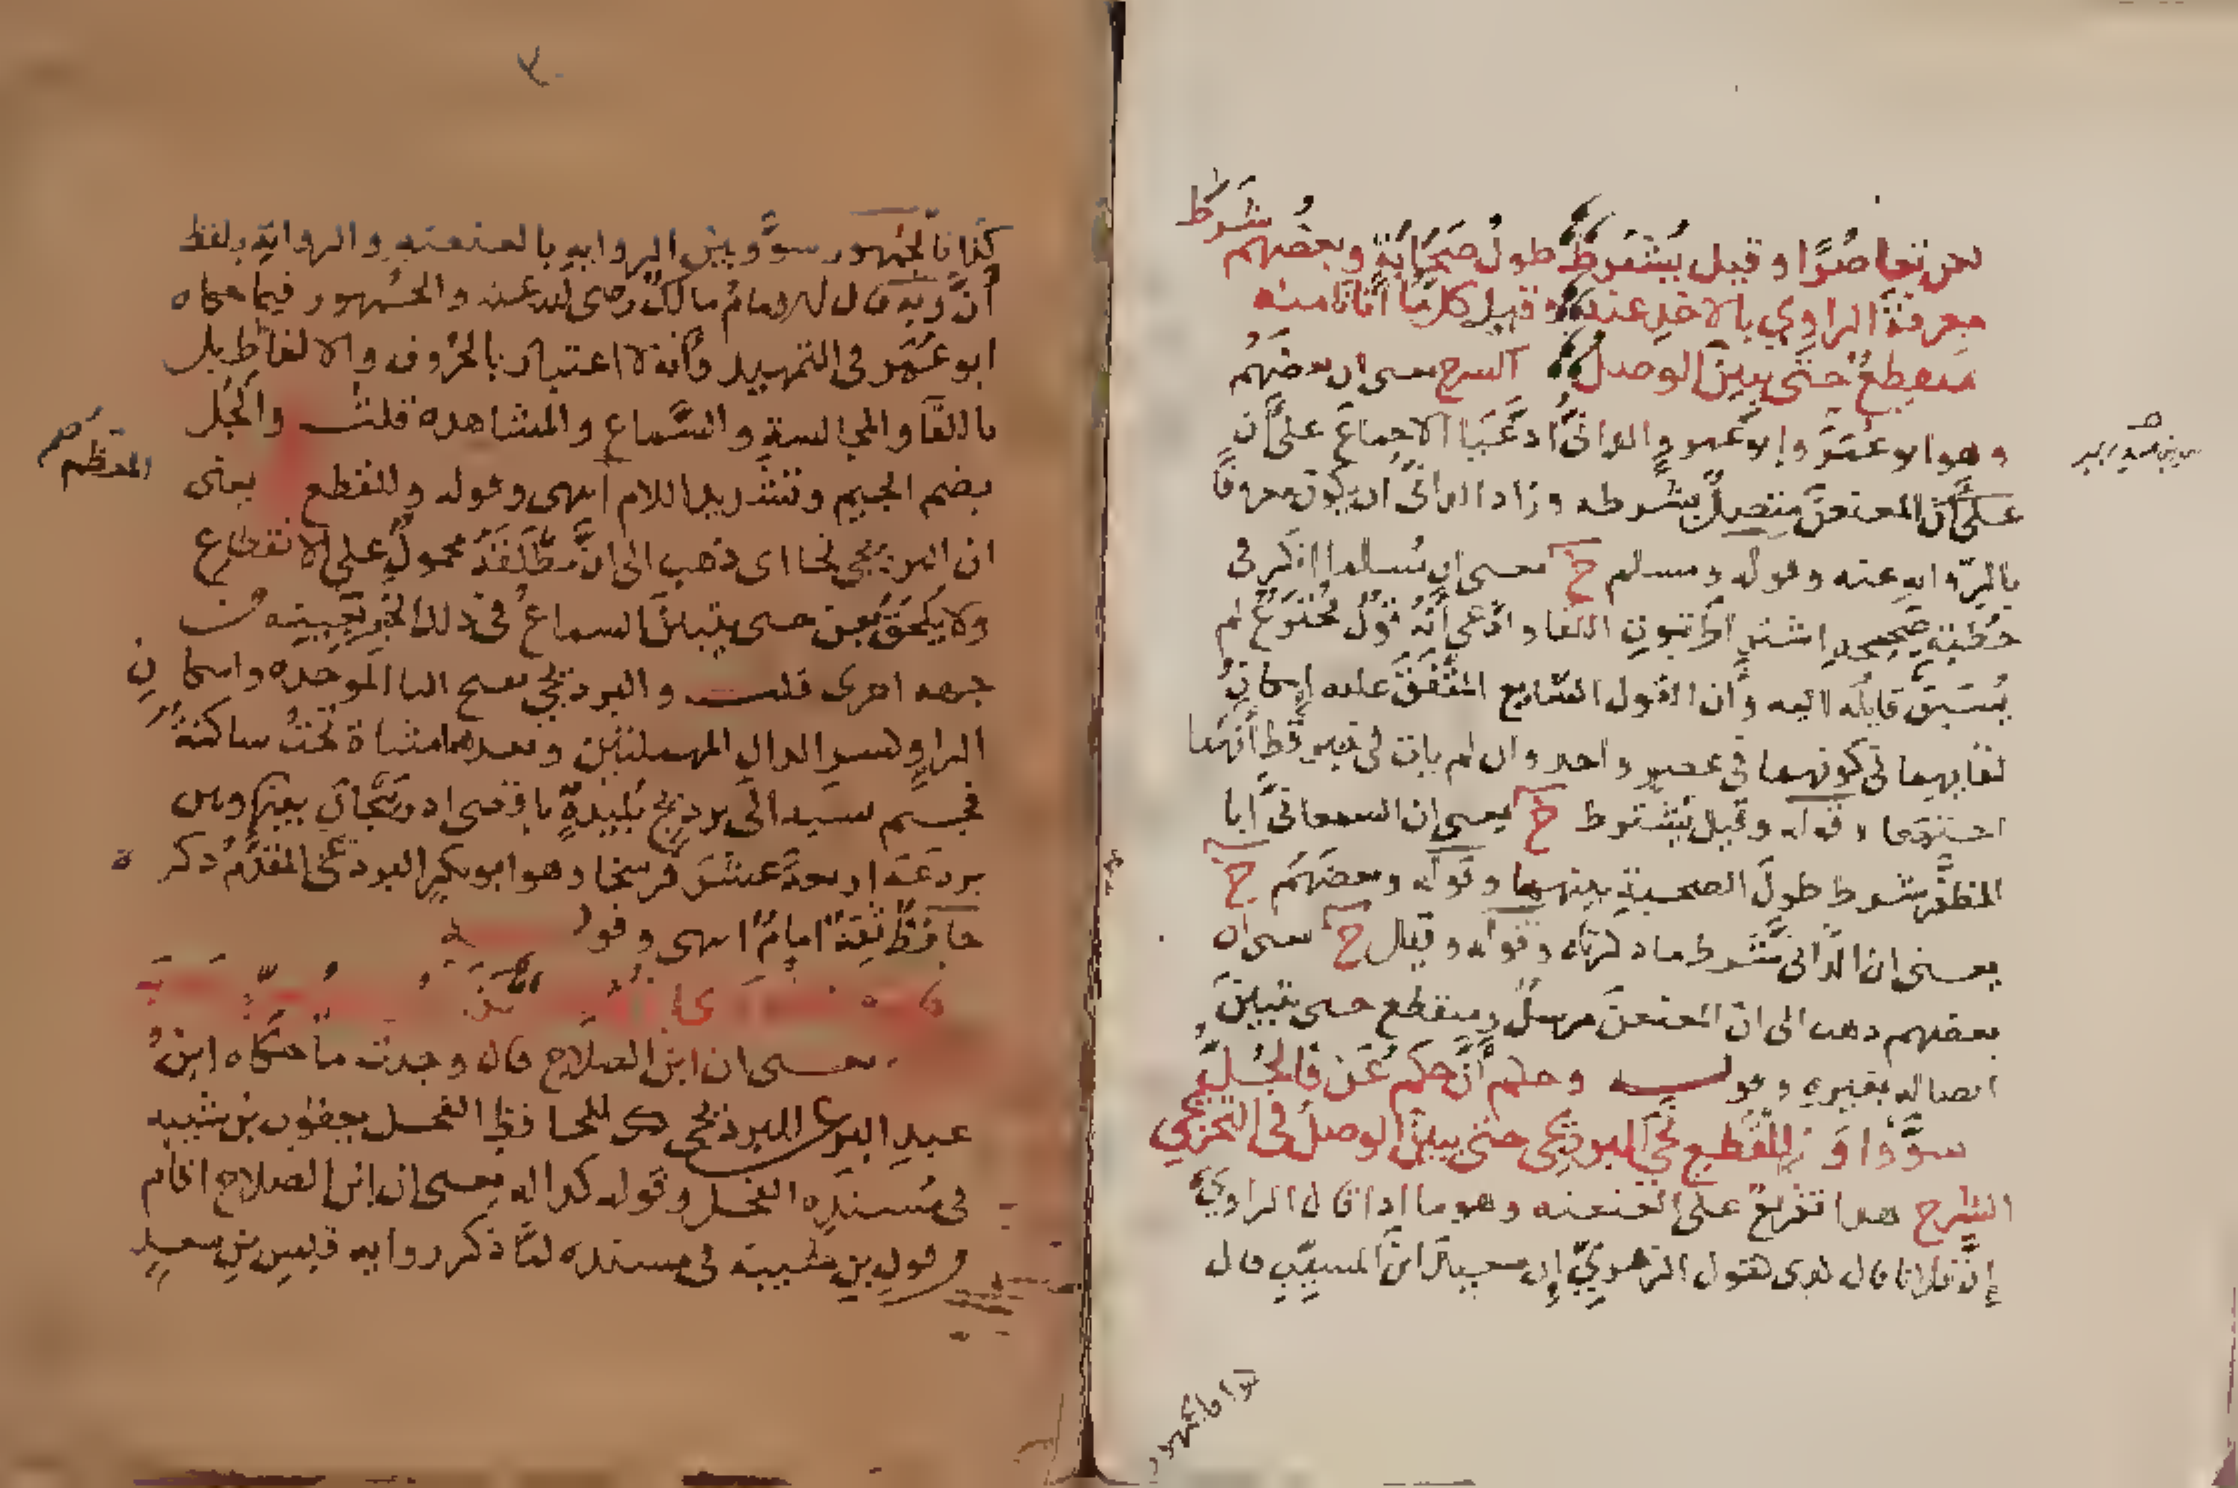 لكن تعاصرا وقيل يشترط طول صحابة وبعضهم شرط
معرفة الراوي بالاخذ عنه وقيل كل ما أتانا منه
منقطع حتى يبين الوصل الشرح يعني ان بعضهم
وهو ابو عمر وابو عمرو الداني ادعيا الاجماع على أن
على أن المعنعن متصل بشرطه وزاد الداني ان يكون معروفا
بالرواية عنه وقوله ومسلم خ يعني ان مسلما انكر في
خطبة صحيحه اشتراط ثبوت اللقا وادعى أنه قول مخترع لم
يسبق قايله اليه وأن القول الشايع المتفق عليه امكان
لقايهما في كونهما في عصر واحد وان لم يات في خبر قط أنهما
اجتمعا وقوله وقيل يشترط خ يعني ان السمعاني أبا
المظفر شرط طول الصحبة بينهما وقوله وبعضهم خ
يعني ان الداني شرط ما ذكرناه وقوله وقيل خ يعني ان
بعضهم ذهب الى ان المعنعن مرسل ومنقطع حتى يتبين
اتصاله بغيره وقوله وحكم أن حكم عن فالجل
سووا وللقطع نحى البرديجي حتى يبين الوصل في التخريج
الشرح هذا تفريع على العنعنة وهو ما اذا قال الراوي
إن فلانا قال كذى كقول الزهري إن سعيد ابن المسيب قال
كذا فالجمهور سووا بين الرواية بالعنعنة والرواية بلفظ
أن وبه قال الامام مالك رضي الله عنه والجمهور فيما حكاه
ابو عمر في التمهيد وأنه لا اعتبار بالحروف والالفاظ بل
باللقا والمجالسة والسماع والمشاهدة قلت والجل المعظم
بضم الجيم وتشديد اللام انتهى وقوله وللقطع يعني
ان البرديجي نحا اى ذهب الى ان مطلقه محمول على الانقطاع
ولا يلحق بعن حتى يتبين السماع في ذلك الخبر بعينه من
جهة اخرى قلت والبرديجي بفتح البا الموحدة واسكان
الرا وكسر الدال المهملتين وبعدهما مثناة تحت ساكنة
فجيم نسبة الى برديج بليدة باقصى اذربيجان بينها وبين
بردعة اربعة عشر فرسخا وهو ابو بكر البرديجي المقدم ذكره
حافظ ثقة امام انتهى وقوله
يعني ان ابن الصلاح قال وجدت ما حكاه ابن
عبد البر عن البرديجي للحافظ الفحل يعقوب بن شيبة
في مسنده الفحل وقوله كذا له يعني ان ابن الصلاح اقام
قول بن شيبة في مسنده لما ذكر رواية قيس بن سعد